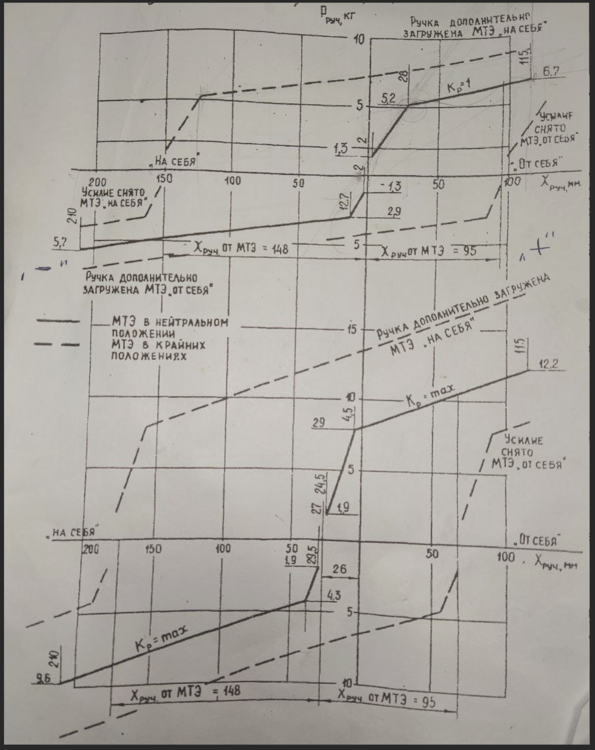 Pруч, кг
РУЧКА ДОПОЛНИТЕЛЬНО
ЗАГРУЖЕНА МТЭ „НА СЕБЯ"
10
28
115
Kp=1
6.7
5,2
5
УСИЛИЕ
СНЯТО
МТЭ„ОТ СЕБЯ"
2
1,3
„НА СЕБЯ"
„ОТ СЕБЯ"
200
150
100
50
2
50
100
Xруч, мм
УСИЛИЕ СНЯТО
МТЭ„НА СЕБЯ"
210
12,7
1,3
2,9
5,7
Xруч ОТ МТЭ = 148
5
Xруч ОТ МТЭ = 95
„ - "
„ + "
РУЧКА ДОПОЛНИТЕЛЬНО
ЗАГРУЖЕНА МТЭ„ОТ СЕБЯ"
МТЭ В НЕЙТРАЛЬНОМ
ПОЛОЖЕНИИ
МТЭ В КРАЙНИХ
ПОЛОЖЕНИЯХ
РУЧКА ДОПОЛНИТЕЛЬНО ЗАГРУЖЕНА
МТЭ „НА СЕБЯ"
15
115
12,2
10
Kp=max
29
4,5
УСИЛИЕ
СНЯТО
МТЭ„ОТ СЕБЯ"
5
24,5
27
1,9
„НА СЕБЯ"
„ОТ СЕБЯ"
200
150
100
50
50
100
Xруч, мм
1,9
29,5
26
4,3
5
Kp=max
210
9,6
10
Xруч. ОТ МТЭ = 148
Xруч ОТ МТЭ = 95